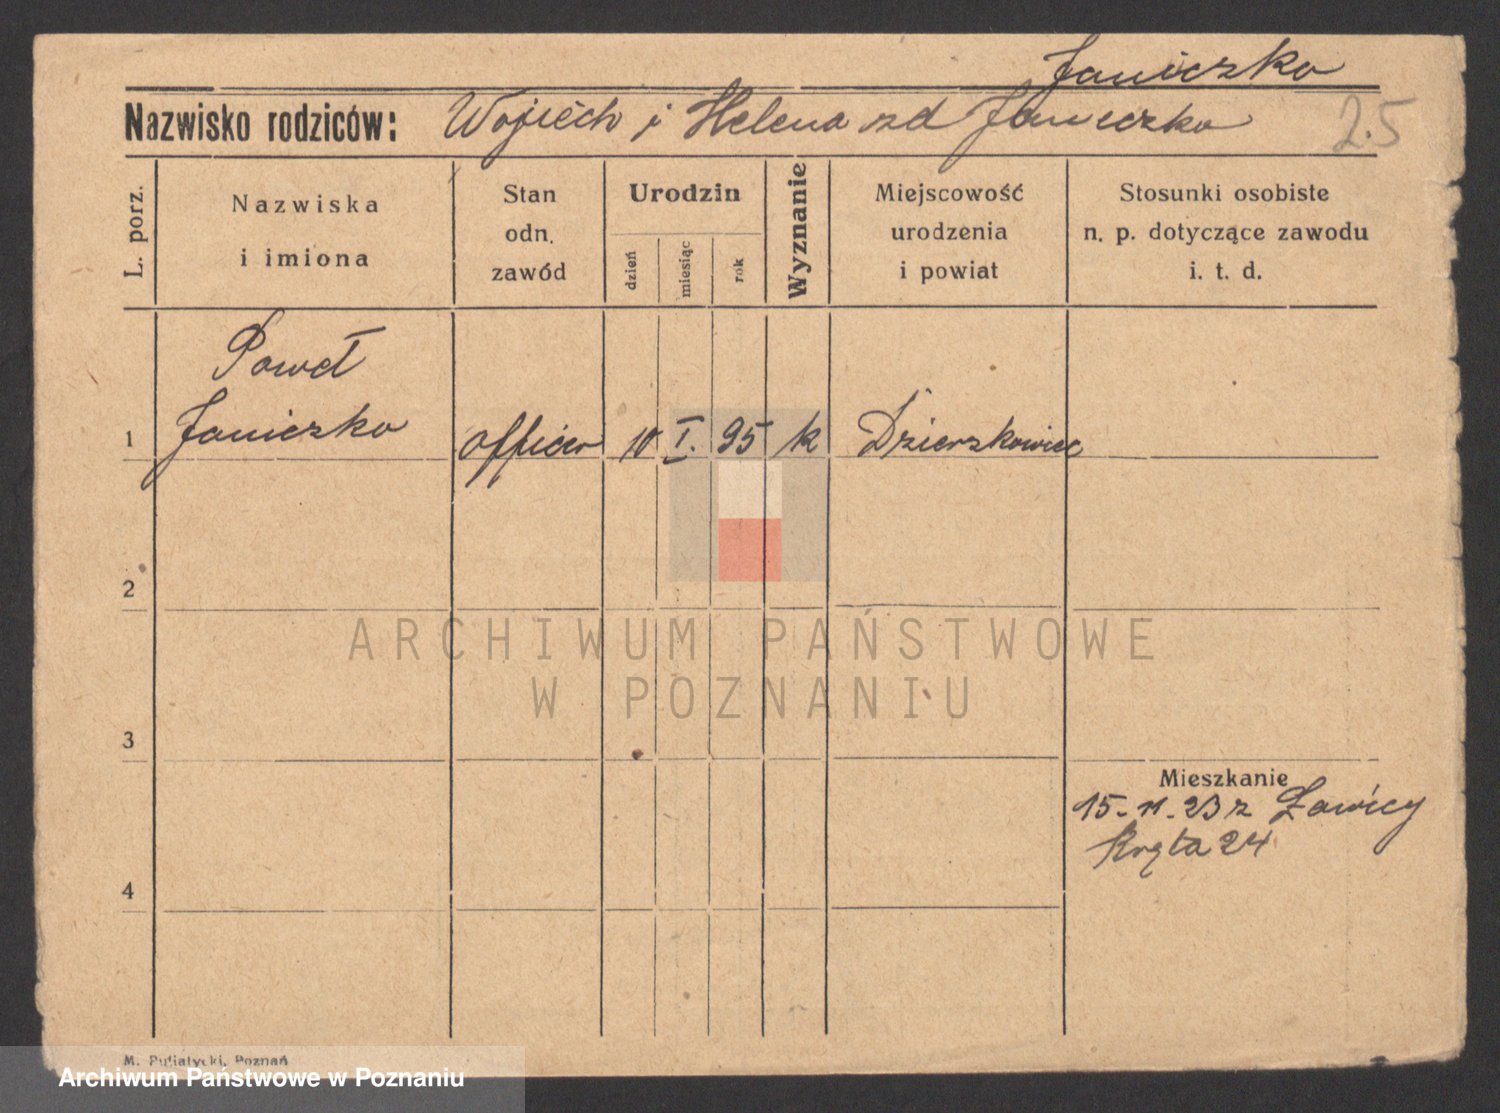 Janiczko
Nazwisko rodziców: Wojciech i Helena zd Janiczko
2.5
L. porz.
Nazwiska
i imiona
Stan
odn.
zawód
Urodzin
dzień
miesiąc
rok
Wyznanie
Miejscowość
urodzenia
i powiat
Stosunki osobiste
n. p. dotyczące zawodu
i. t. d.
Paweł
1 Janiczko officer 10 I. 95 k Dzierzkowiec
2
ARCHIWUM PAŃSTWOWE
W POZNANIU
3
Mieszkanie
15-11-23 z Ławicy
Kręta 24
4
M. Putiatycki, Poznań
Archiwum Państwowe w Poznaniu